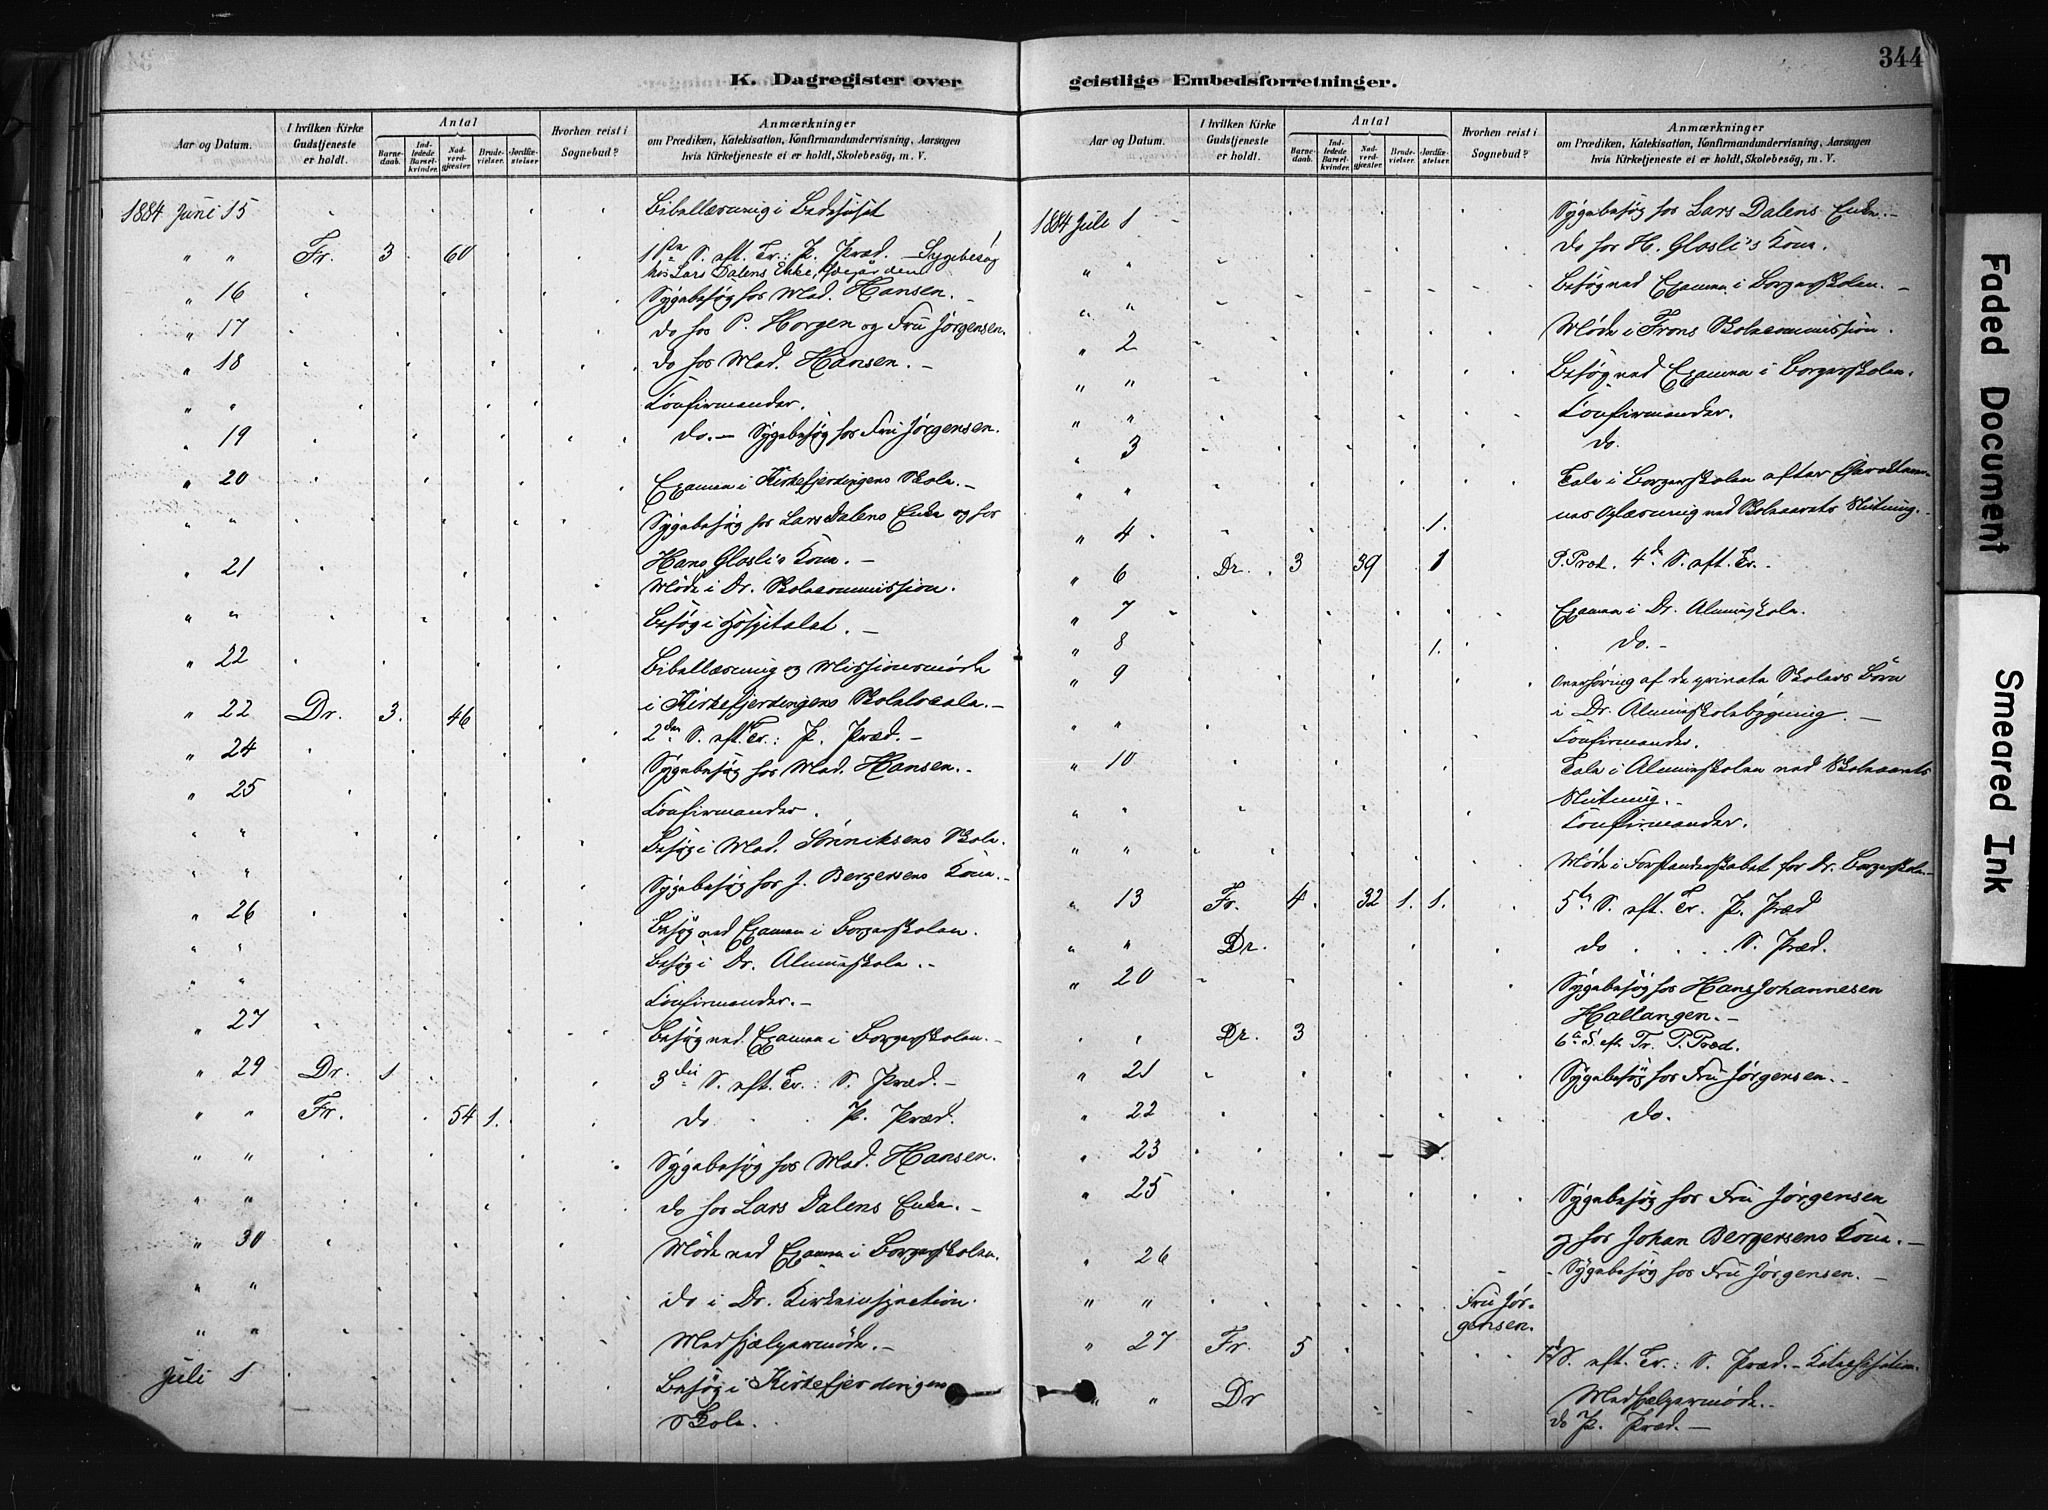 344
K. Dagregister over geistlige Embedsforretninger.
Aar og Datum.
I hvilken Kirke Gudstjeneste er holdt.
Antal
Barnedaab.
Indledede Barselkvinder.
Nadverdgjæster.
Brudevielser.
Jordfæstelser.
Hvorhen reist i Sognebud?
Anmærkninger
om Prædiken, Katekisation, Konfirmandundervisning, Aarsagen
hvis Kirketjeneste ei er holdt, Skolebesög, m. V.
1884 Juni 15 Bibellæsning i Bedehuset
" " Fr. 3 60 1ste S. aft. Tr.: P. Præd. – Sygebesøg
hos Lars Dalens Enke, foregår den
" 16 Sygebesøg hos Mad. Hansen. –
" 17 do hos P. Horgen og Fru Jørgensen.
" 18 do hos Mad. Hansen. –
" " Confirmander.
" 19 do. – Sygebesøg hos Fru Jørgensen.
" 20 Examen i Kirkefjerdingens Skole. –
" " Sygebesøg hos Lars Dalens Enke og hos
Hans Glosli's Kone. –
" 21 Møde i Dr. Skolecommission.
" " Besøg i Hospitalet. –
" 22 Bibellæsning og Missionsmøde
i Kirkefjerdingens Skolelocale. –
" 22 Dr. 3. 46 2den S. eft. Tr.: P. Præd. –
" 24 Sygebesøg hos Mad. Hansen. –
" 25 Confirmander.
" " Besøg i Mad. Skole.
" " Sygebesøg hos J. Bergersens Kone. –
" 26 Besøg ved Examen i Borgerskolen.
" " Besøg i Dr. Almueskole. –
" " Confirmander. –
" 27 Besøg ved Examen i Borgerskolen. –
" 29 Dr. 1 3die S. eft. Tr.: S. Præd. –
" " Fr. 54 1. do P. Præd.
" " Sygebesøg hos Mad. Hansen.
" " do hos Lars Dalens Enke. –
" 30 Møde ved Examen i Borgerskolen.
" " do i Dr. Kirkeinspection.
" " Medhjælpermøde. –
Juli 1 Besøg i Kirkefjerdingens
Skole.
Aar og Datum.
I hvilken Kirke Gudstjeneste er holdt.
Antal
Barnedaab.
Indledede Barselkvinder.
Nadverdgjæster.
Brudevielser.
Jordfæstelser.
Hvorhen reist i Sognebud?
Anmærkninger
om Prædiken, Katekisation, Konfirmandundervisning, Aarsagen
hvis Kirketjeneste ei er holdt, Skolebesög, m. V.
1884 Juli 1 Sygebesøg hos Lars Dalens Enke. –
do hos H. Glosli's Kone.
" " Besøg ved Examen i Borgerskolen. –
" " Møde i Frons Skolecommission.
" 2 Besøg ved Examen i Borgerskolen.
" " Confirmander.
" " do.
" 3 Tale i Borgerskolen efter
" " Oplæsning ved Skoleaarets Slutning. –
" 4 1.
" 6 Dr. 3 39 1 P. Præd. 4de S. aft. Tr. –
" 7 Examen i Dr. Almueskole.
" 8 1. do. –
" 9 Overhøring af de private Skolers Børn
i Dr. Almueskolebygning. –
" " Confirmander.
" 10 Tale i Almueskolen ved Skoleaarets
Slutning. –
" " Confirmander.
" " Møde i Forstanderskabet for Dr. Borgerskole. –
" 13 Fr. 4. 32 1. 1. 5te S. eft. Tr. P. Præd
" " Dr. do S. Præd.
" 20 Sygebesøg hos Hans Johannesen
Hallangen. –
" " Dr. 3 6te S. eft. Tr. P. Præd.
" 21 Sygebesøg hos Fru Jørgensen. –
" 22 do.
" 23 1.
" 25 Sygebesøg hos Fru Jørgensen
og hos Johan Bergersens Kone. –
" 26 Sygebesøg hos Fru Jørgensen. –
" " Fru Jørgensen.
" 27 Fr. 5 7de S. eft. Tr.: S. Præd. – Katechisation.
Medhjælpermøde. –
" " Dr do P. Præd. –
Faded Document
Smeared Ink